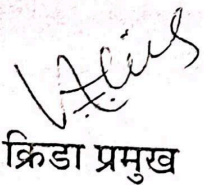 क्रिडा प्रमुख